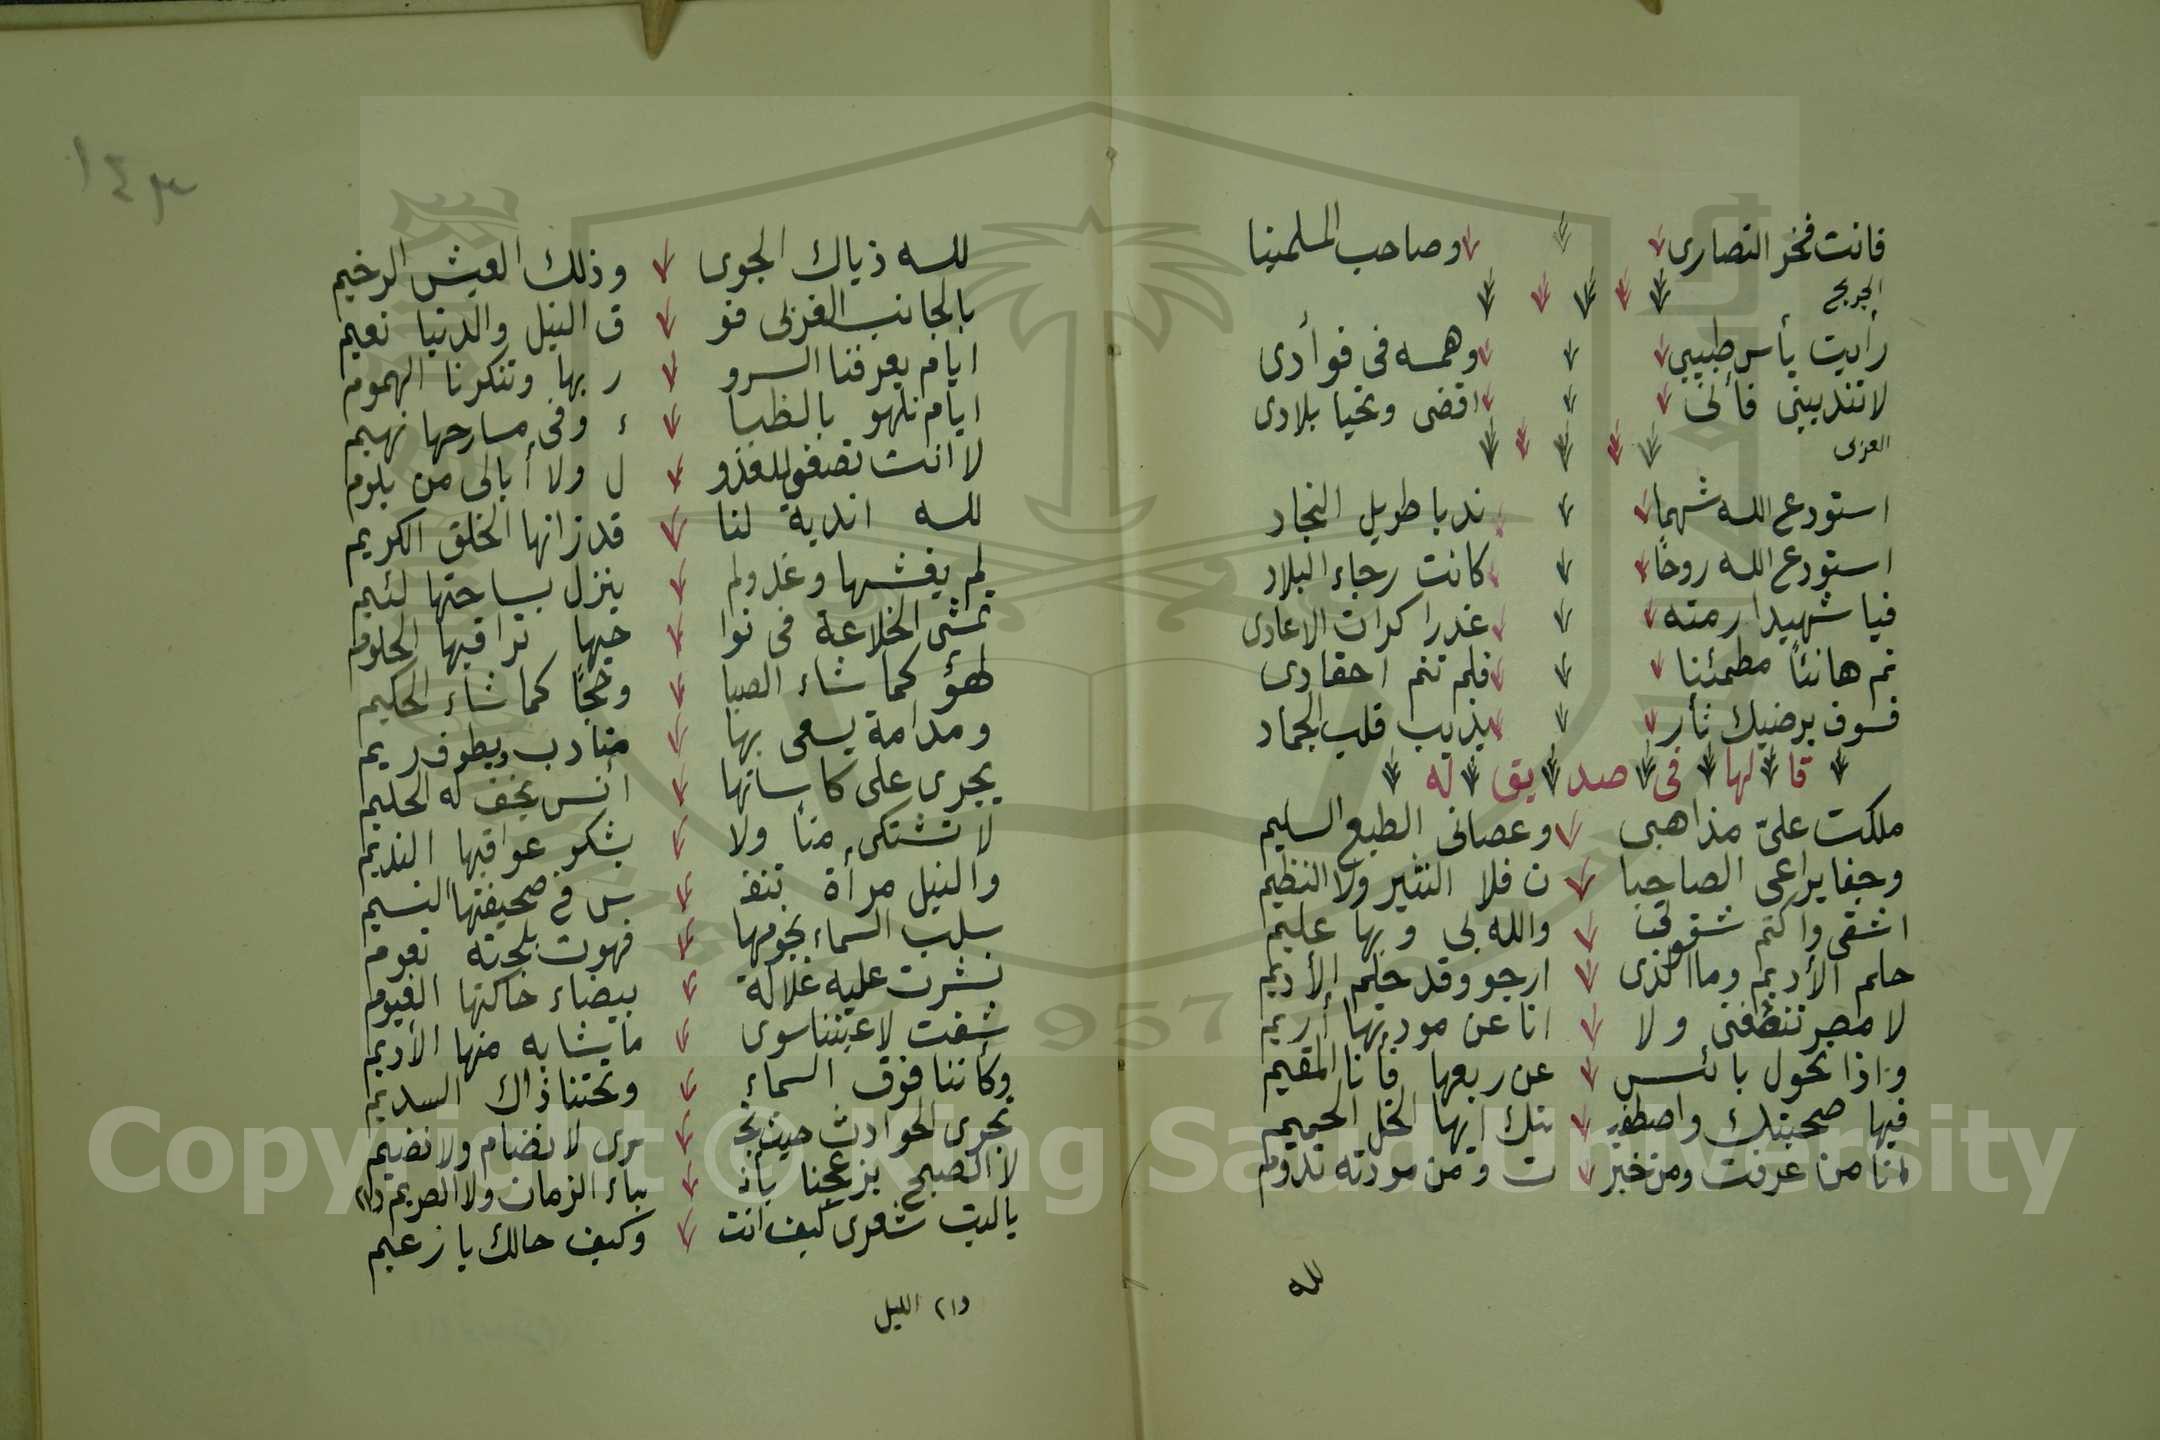 فانت فخر النصارى وصاحب المسلمينا
الجريح
رأيت يأس طبيبي وهمسه فى فوأدى
لا تندبينى فأنى اقضى وتحيا بلادى
العربى
استودع الله شهما ندبا طويل النجاد
استودع الله روحًا كانت رجاء البلاد
فيا شهيدا رمته غدرا كرات الاعادى
نم هانئاً مطمئنا فلم تنم احقادى
فسوف يرضيك ثأر يذيب قلب الجماد
قالها فى صديق له
ملكت علىّ مذاهبى وعصانى الطبع السليم
وجفا يراعى الصاحبا ن فلا النثير ولا النظيم
اشقى واكتم شقوتى والله بى وبها عليم
حلم الأديم وما الذى ارجو وقد حلم الأديم
لا مصر تنصفنى ولا انا عن مودتها أريم
واذا تحول بائس عن ربعها فأنا المقيم
فيها صحبتك واصطفيـ ـتك ايها الخل الحميم
انا من عرفت ومن خبر ت ومن مودته تدوم
لله
١٤٣
لله ذياك الجوى وذلك العيش الرخيم
بالجانب الغربى فو ق النيل والدنيا نعيم
ايام يعرفنا السرو ر بها وتنكرنا الهموم
ايام نلهو بالظبا ء وفى مسارحها نهيم
لا انت تصغى للعذو ل ولا أبالى من يلوم
لله اندية لنا قد زانها الخلق الكريم
لم يغشها وغد ولم ينزل بساحتها لئيم
تمشى الخلاعة فى نوا حيها تراقبها الحلوم
لهوٌ كما شاء الصبا وحجًا كما شاء الحكيم
ومدامة يسعى بها متأدب ويطوف ريم
يجرى على كاساتها أنس يخف له الحليم
لا تشتكى منا ولا يشكو عواقبها النديم
والنيل مرأة تنفـ ـس فى صحيفتها النسيم
سلب السماء نجومها فهوت بلجته تعوم
نشرت عليه غلالة بيضاء حاكتها الغيوم
شفت لاعيننا سوى ما يشابه منها الأديم
وكأننا فوق السماء وتحتنا ذاك السديم
تجرى الحوادث حيث تجـ ـرى لا نضام ولا نضيم
لا الصبح يزعجنا بأنـ ـباء الزمان ولا الصريم (١)
يا ليت شعرى كيف انت وكيف حالك يا زعيم
(١) الليل
Copyright © King Saud University
1957